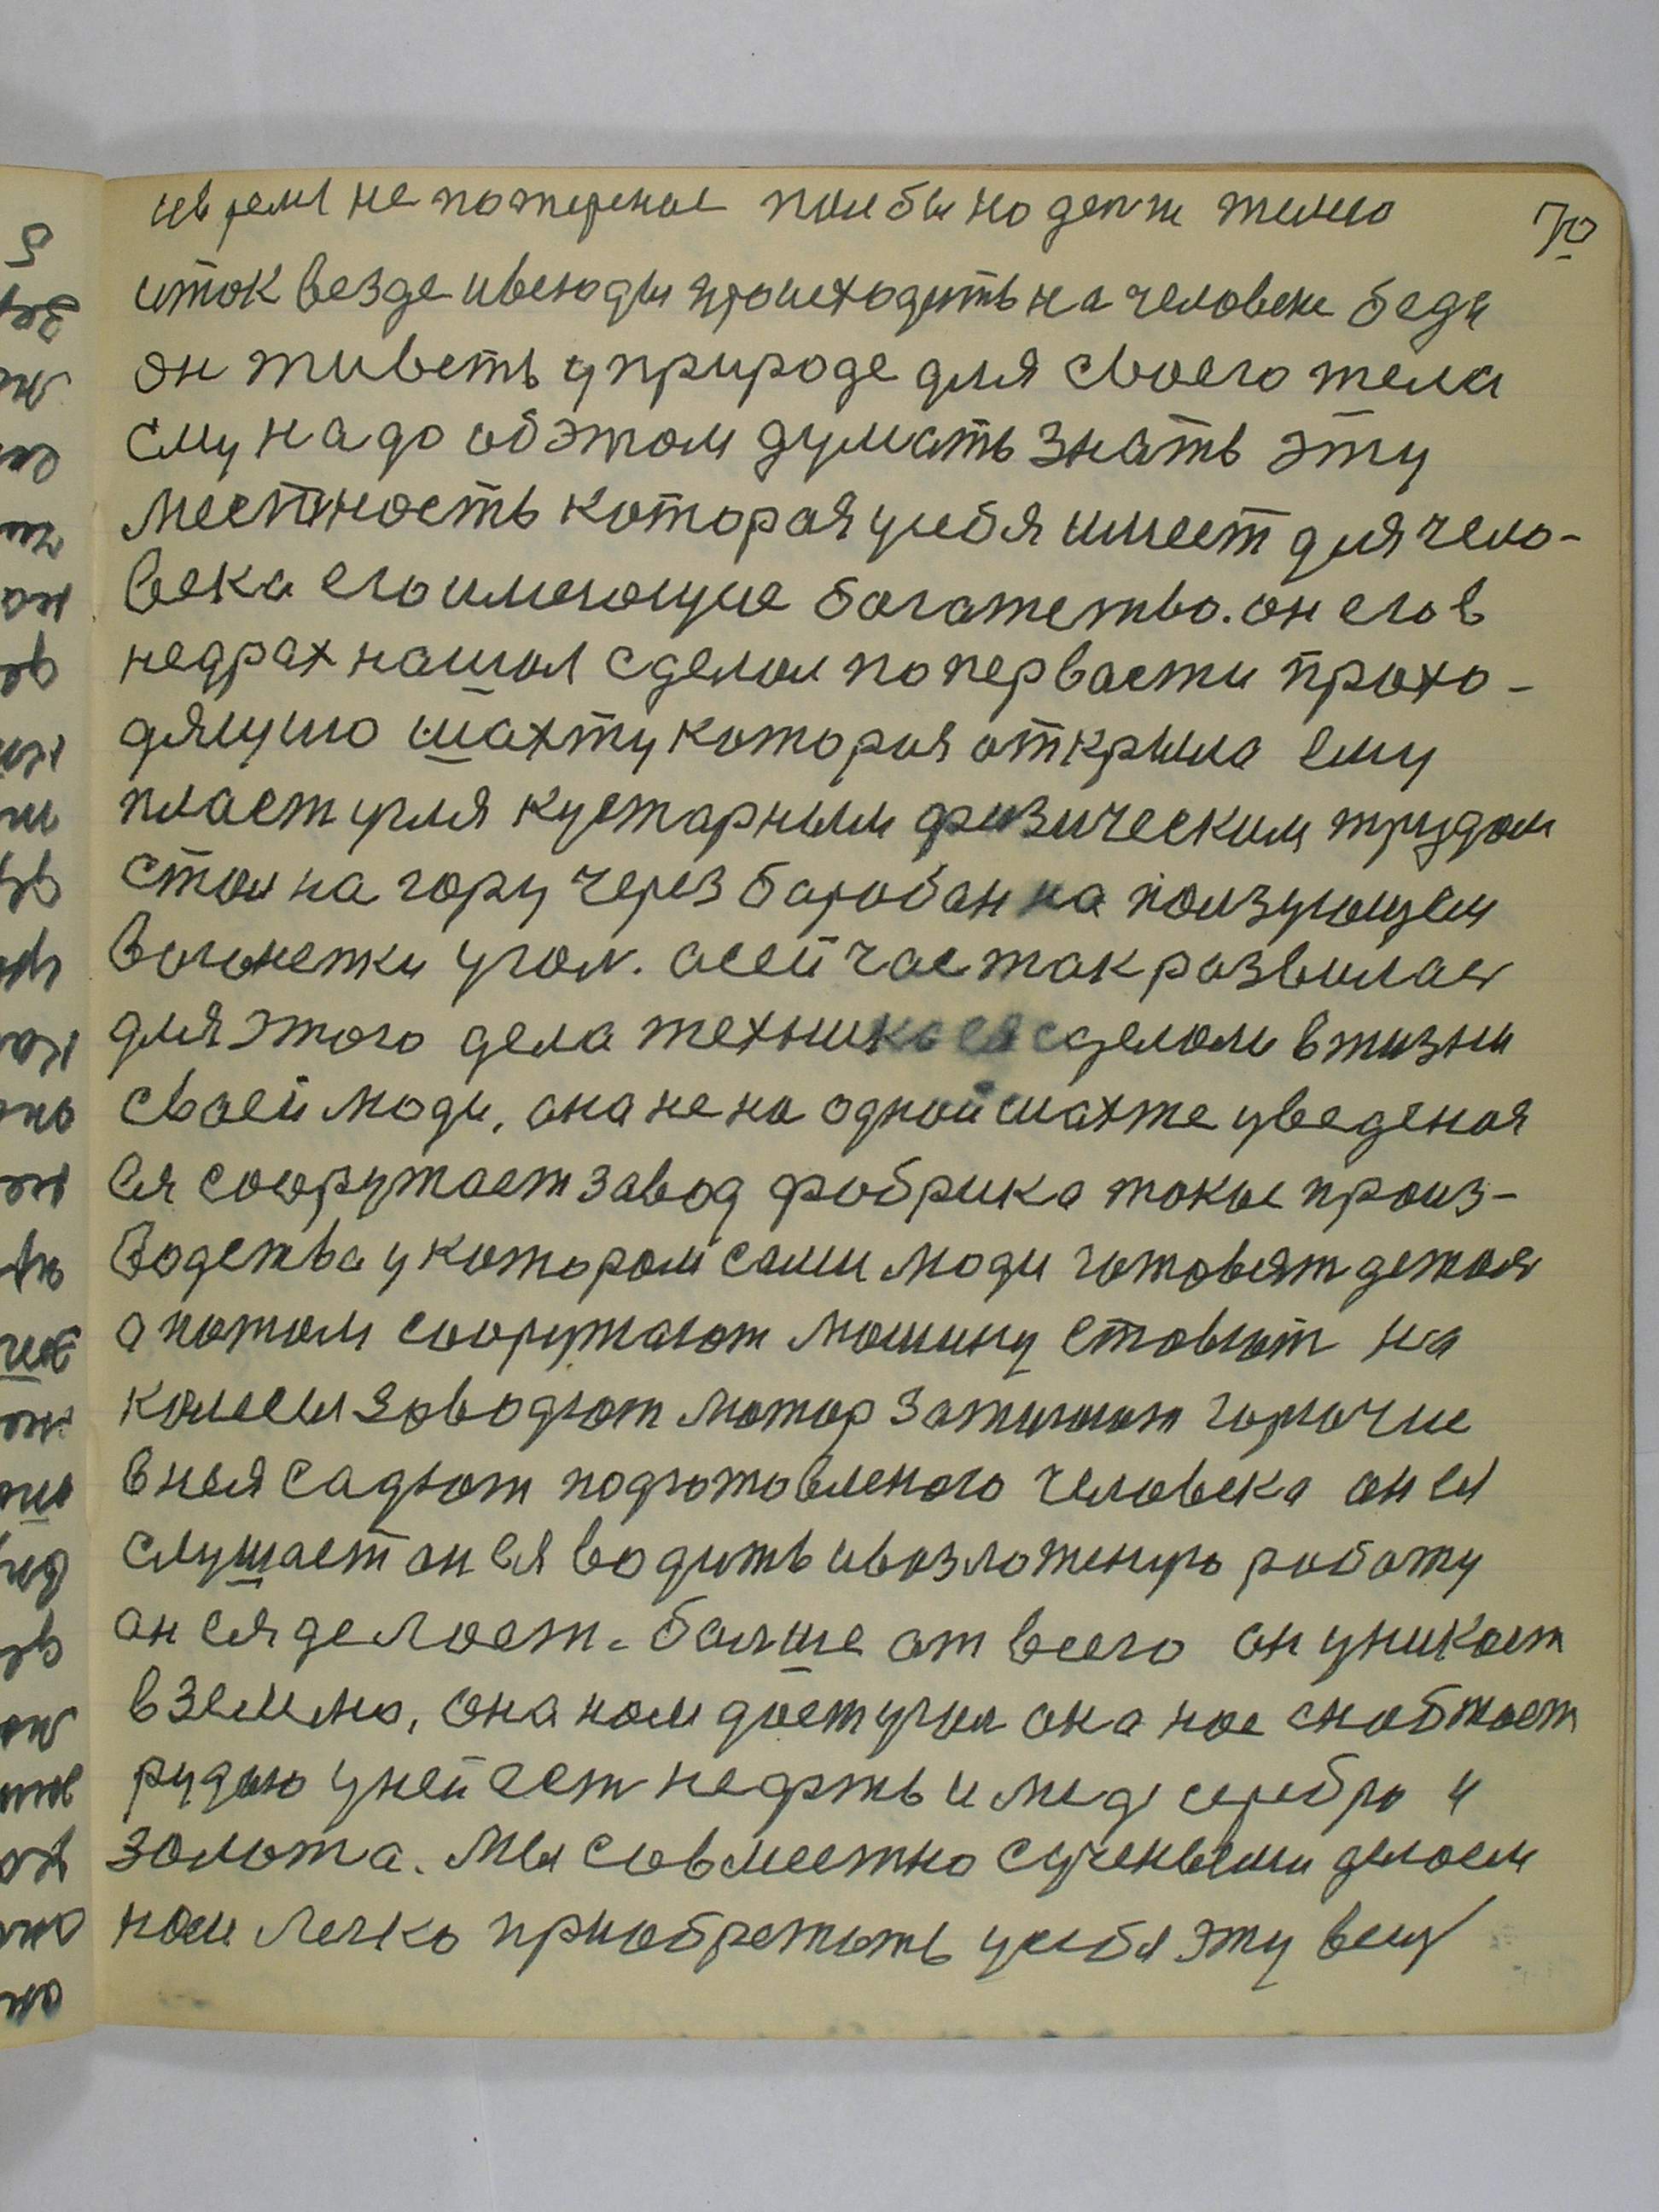 70
и время не потереное как бы надеть тело
итак везде ивсюды происходить на человеке беда
он живеть уприроде для своего тела
ему надо обэтом думать знать эту
местность которая усебя имеет для чело-
века егоимеющие богатство. он его в
недрах нашол сделал попервости прохо-
дящую шахту которая открыла ему
пласт угля кустарным физическим трудом
стал на гору через барабан на ползующем
вагонетки угол. асейчас так развилась
для этого дела техника ея сделали вжизни
своей люди, она не на одной шахте уведеная
Ея сооружает завод фабрика такие произ-
водства укотором сами люди готовят деталя
а потом сооружают машину ставют на
колесы заводют мотор заливают горючие
внея садют подготовленого человека он ея
слушает он ея водить ивозложеную работу
он ея делает. больше от всего он уникает
вземлю, она нам дает угол она нас снабжает
рудою уней ест нефть и медь серебро и
золота. Мы совместно сучеными делаем
нам легко приобретать усебя эту вещ